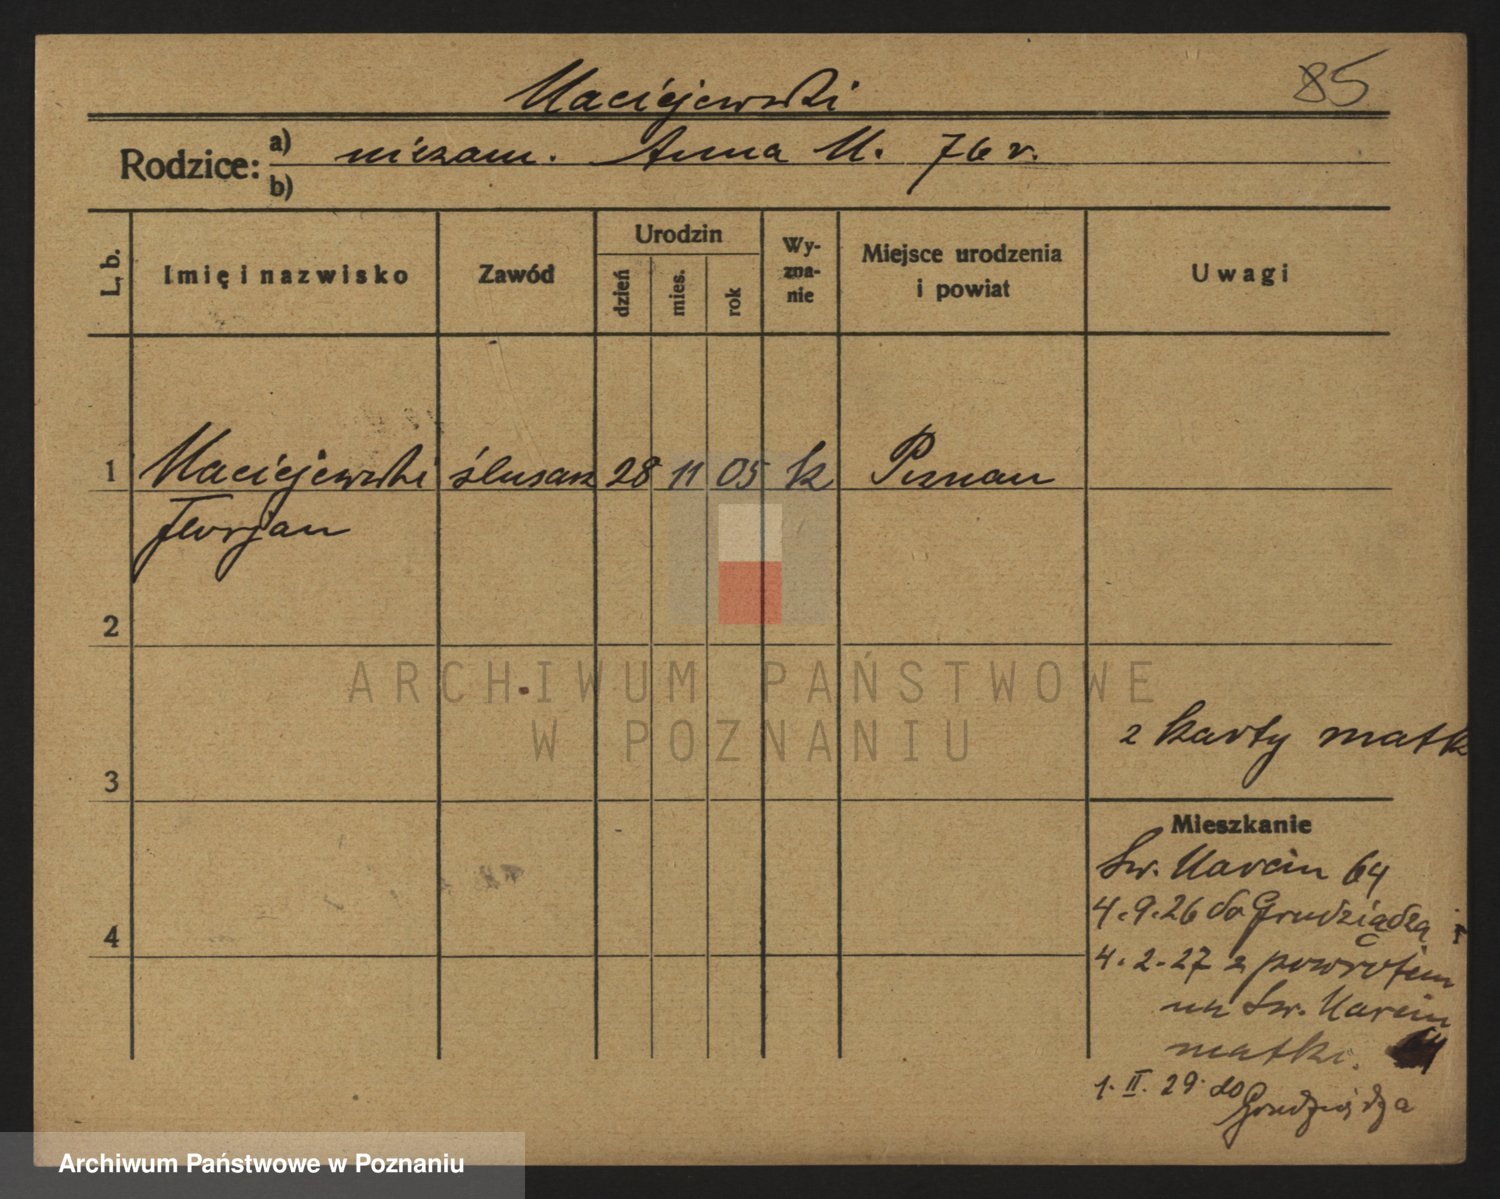 Maciejewski
85
Rodzice: a) niezam. Anna M. 76 r.
b)
L. b.
Imię i nazwisko
Zawód
Urodzin
dzień
mies.
rok
Wy-
zna-
nie
Miejsce urodzenia
i powiat
Uwagi
1 Maciejewski ślusarz 28 11 05 k Poznań
Florjan
2
ARCHIWUM PAŃSTWOWE
W POZNANIU
z karty matk
3
Mieszkanie
Św. Marcin 64
4.9.26 do Grudziądza
4
4.2.27 z powrotem
na Św. Marcin
matki.
1. II. 29 do
Grudziądza
Archiwum Państwowe w Poznaniu